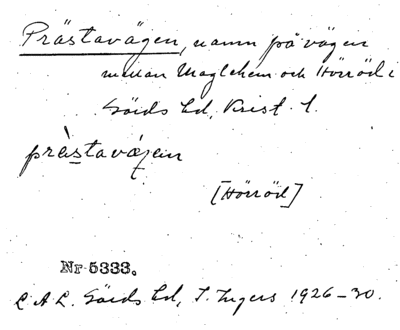 Prästavägen, namn på vägen
mellan Maglehem och Hörröd i
Gärds hd, Krist. l.
prästavägen
[Hörröd]
Nr 5333.
L A L. Gärds hd, I. Ingers 1926-30.